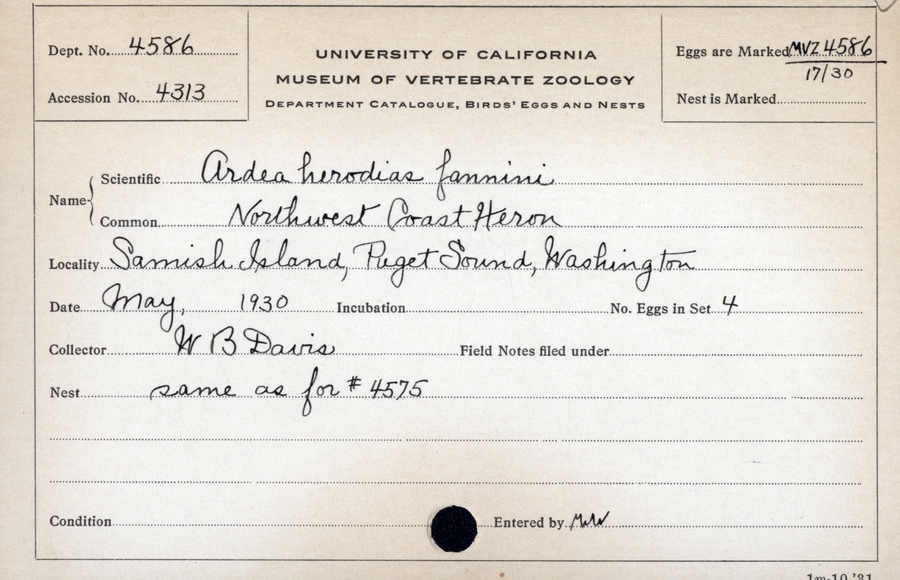 Dept. No. 4586
Accession No. 4313
UNIVERSITY OF CALIFORNIA
MUSEUM OF VERTEBRATE ZOOLOGY
DEPARTMENT CATALOGUE, BIRDS' EGGS AND NESTS
Eggs are Marked MVZ 4586
17/30
Nest is Marked
Name
Scientific Ardea herodias fannini
Common Northwest Coast Heron
Locality Samish Island, Puget Sound, Washington
Date May, 1930 Incubation No. Eggs in Set 4
Collector W B Davis Field Notes filed under
Nest same as for # 4575
Condition Entered by
1m-10 '31